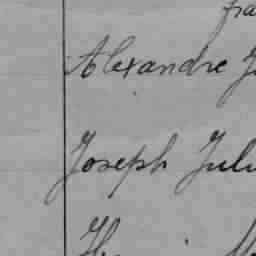 fra
Alexandre J
Joseph Juli